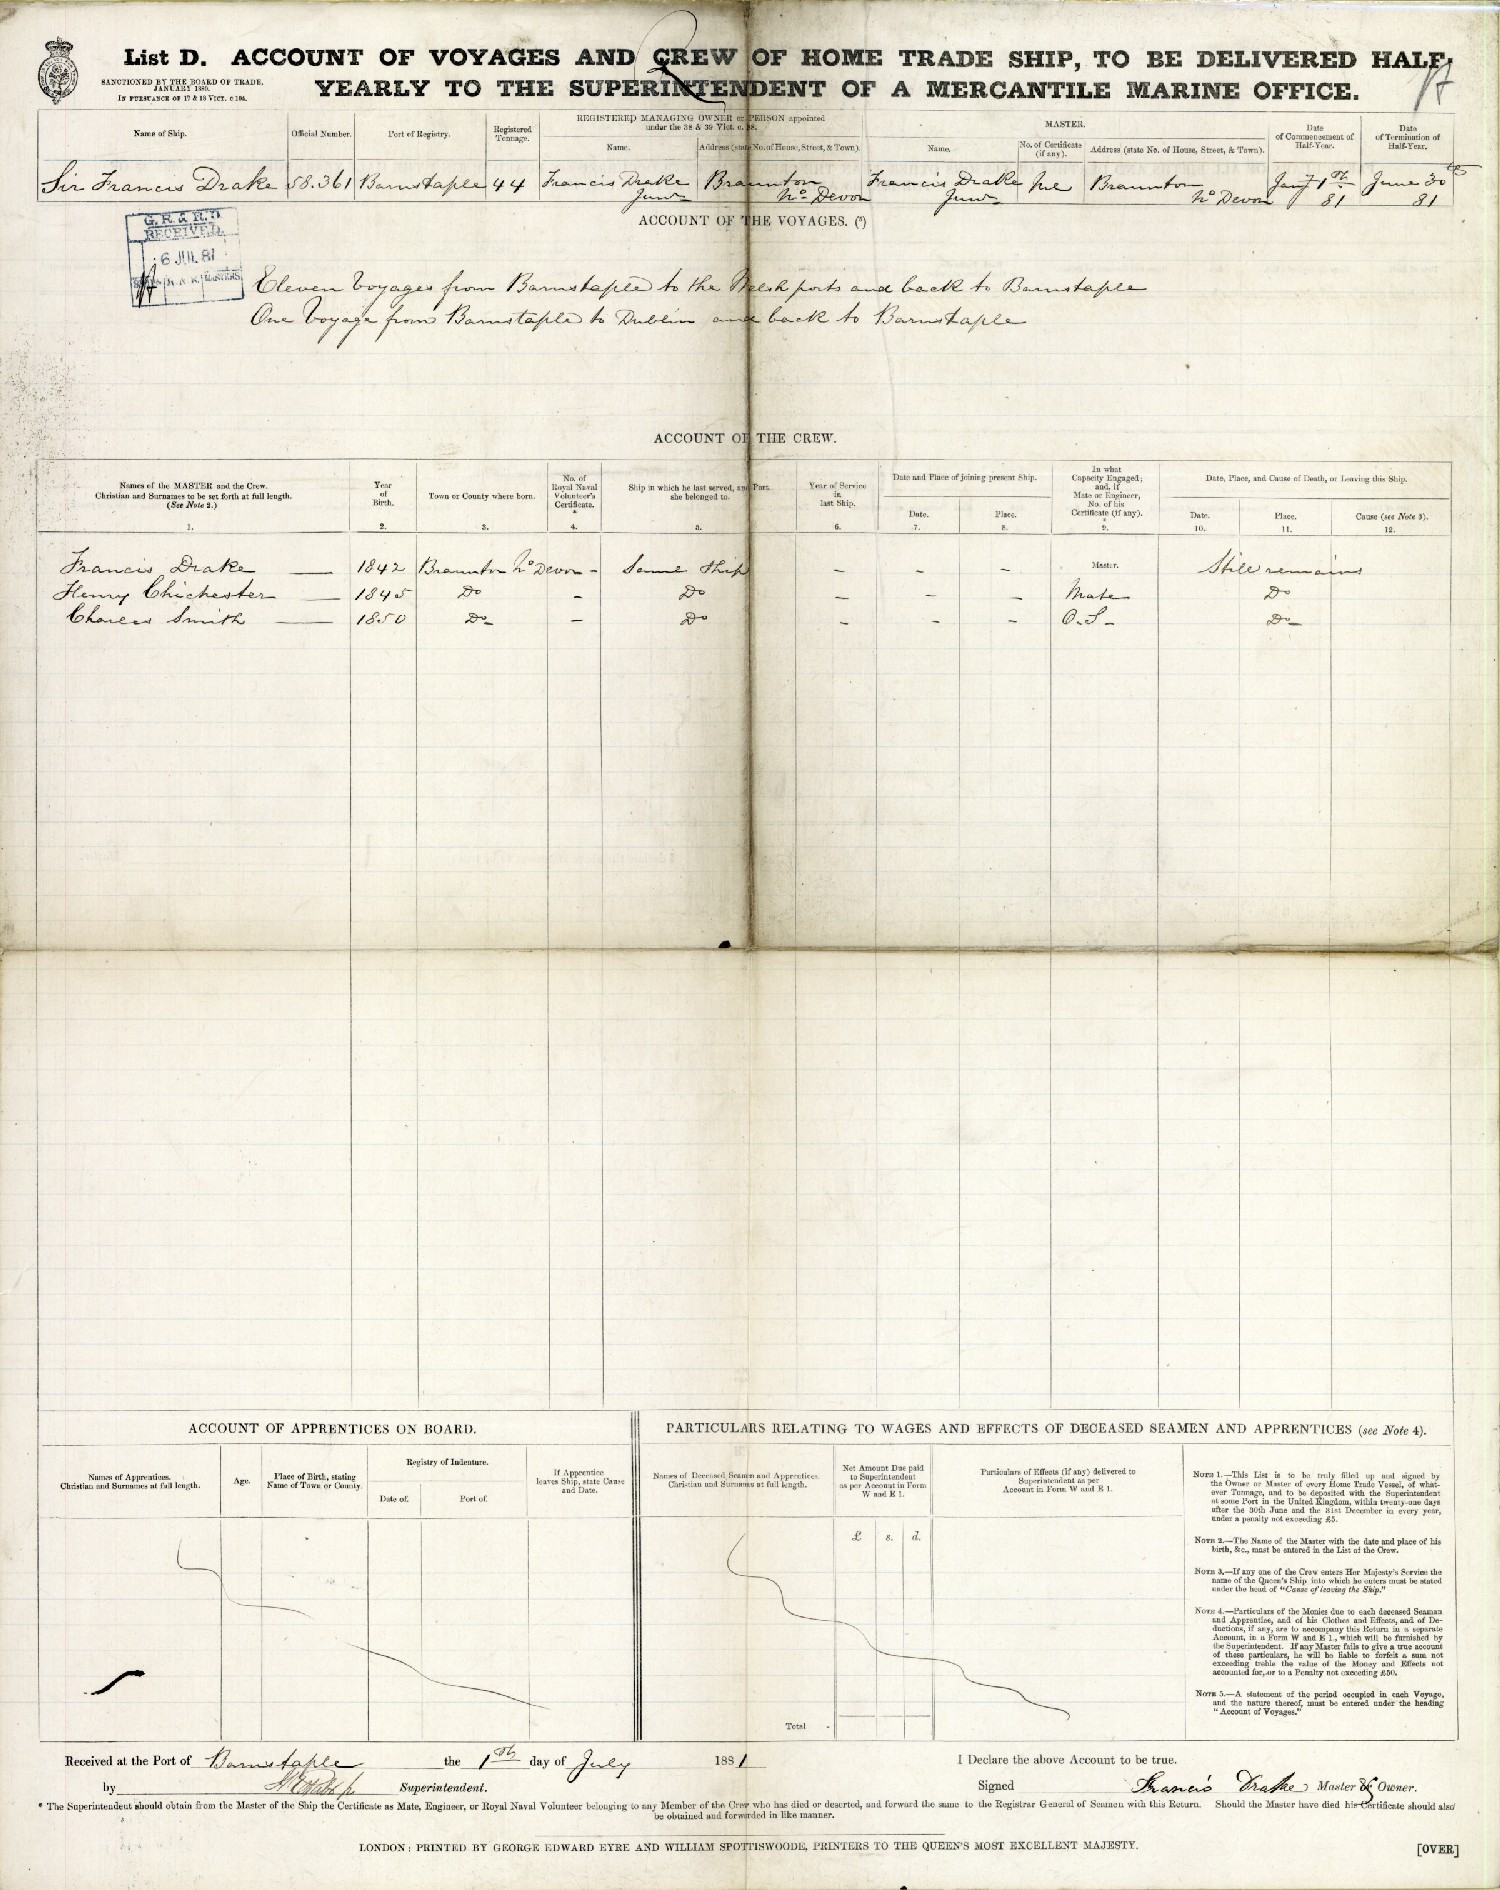 List D. ACCOUNT OF VOYAGES AND CREW OF HOME TRADE SHIP, TO BE DELIVERED HALF-
YEARLY TO THE SUPERINTENDENT OF A MERCANTILE MARINE OFFICE.
SANCTIONED BY THE BOARD OF TRADE.
JANUARY 1880.
IN PURSUANCE OF 17 & 18 VICT. c. 104.
REGISTERED MANAGING OWNER or PERSON appointed
under the 38 & 39 Vict. c. 88.
MASTER.
Name of Ship. Official Number. Port of Registry. Registered Tonnage. Name. Address (state No. of House, Street, & Town). Name. No. of Certificate (if any). Address (state No. of House, Street, & Town). Date of Commencement of Half-Year. Date of Termination of Half-Year.
Sir Francis Drake 58.361 Barnstaple 44 Francis Drake Junr Braunton No Devon Francis Drake Junr Braunton No Devon Jany 1st 81 June 30th 81
G. R. & R. D.
RECEIVED.
6 JUL 81
ACCOUNT OF THE VOYAGES. (*)
Eleven Voyages from Barnstaple to the Welsh ports and back to Barnstaple
One Voyage from Barnstaple to Dublin and back to Barnstaple
ACCOUNT OF THE CREW.
Names of the MASTER and the Crew. Christian and Surnames to be set forth at full length. (See Note 2.) Year of Birth. Town or County where born. No. of Royal Naval Volunteer's Certificate. * Ship in which he last served, and Port she belonged to. Year of Service in last Ship. Date and Place of joining present Ship. In what Capacity Engaged; and, if Mate or Engineer, No. of his Certificate (if any). * Date, Place, and Cause of Death, or Leaving this Ship.
Date. Place. Date. Place. Cause (see Note 3).
1. 2. 3. 4. 5. 6. 7. 8. 9. 10. 11. 12.
Francis Drake — 1842 Braunton No Devon - Same Ship - - - Master. Still remains
Henry Chichester — 1845 Do - Do - - - Mate Do
Charles Smith — 1850 Do - - Do - - - O.S - Do -
ACCOUNT OF APPRENTICES ON BOARD.
Names of Apprentices. Christian and Surnames at full length. Age. Place of Birth, stating Name of Town or County. Registry of Indenture. Date of. Port of. If Apprentice leaves Ship, state Cause and Date.
PARTICULARS RELATING TO WAGES AND EFFECTS OF DECEASED SEAMEN AND APPRENTICES (see Note 4).
Names of Deceased Seamen and Apprentices. Christian and Surname at full length. Net Amount Due paid to Superintendent as per Account in Form W and E 1. Particulars of Effects (if any) delivered to Superintendent as per Account in Form W and E 1.
£ s. d.
Total -
NOTE 1.—This List is to be truly filled up and signed by
the Owner or Master of every Home Trade Vessel, of what-
ever Tonnage, and to be deposited with the Superintendent
at some Port in the United Kingdom, within twenty-one days
after the 30th June and the 31st December in every year,
under a penalty not exceeding £5.
NOTE 2.—The Name of the Master with the date and place of his
birth, &c., must be entered in the List of the Crew.
NOTE 3.—If any one of the Crew enters Her Majesty's Service the
name of the Queen's Ship into which he enters must be stated
under the head of "Cause of leaving the Ship."
NOTE 4.—Particulars of the Monies due to each deceased Seaman
and Apprentice, and of his Clothes and Effects, and of De-
ductions, if any, are to accompany this Return in a separate
Account, in a Form W and E 1., which will be furnished by
the Superintendent. If any Master fails to give a true account
of these particulars, he will be liable to forfeit a sum not
exceeding treble the value of the Money and Effects not
accounted for, or to a Penalty not exceeding £50.
NOTE 5.—A statement of the period occupied in each Voyage,
and the nature thereof, must be entered under the heading
"Account of Voyages."
Received at the Port of Barnstaple the 1st day of July 1881
by Superintendent.
I Declare the above Account to be true.
Signed Francis Drake Master & Owner.
* The Superintendent should obtain from the Master of the Ship the Certificate as Mate, Engineer, or Royal Naval Volunteer belonging to any Member of the Crew who has died or deserted, and forward the same to the Registrar General of Seamen with this Return. Should the Master have died his Certificate should also
be obtained and forwarded in like manner.
LONDON: PRINTED BY GEORGE EDWARD EYRE AND WILLIAM SPOTTISWOODE, PRINTERS TO THE QUEEN'S MOST EXCELLENT MAJESTY.
[OVER]